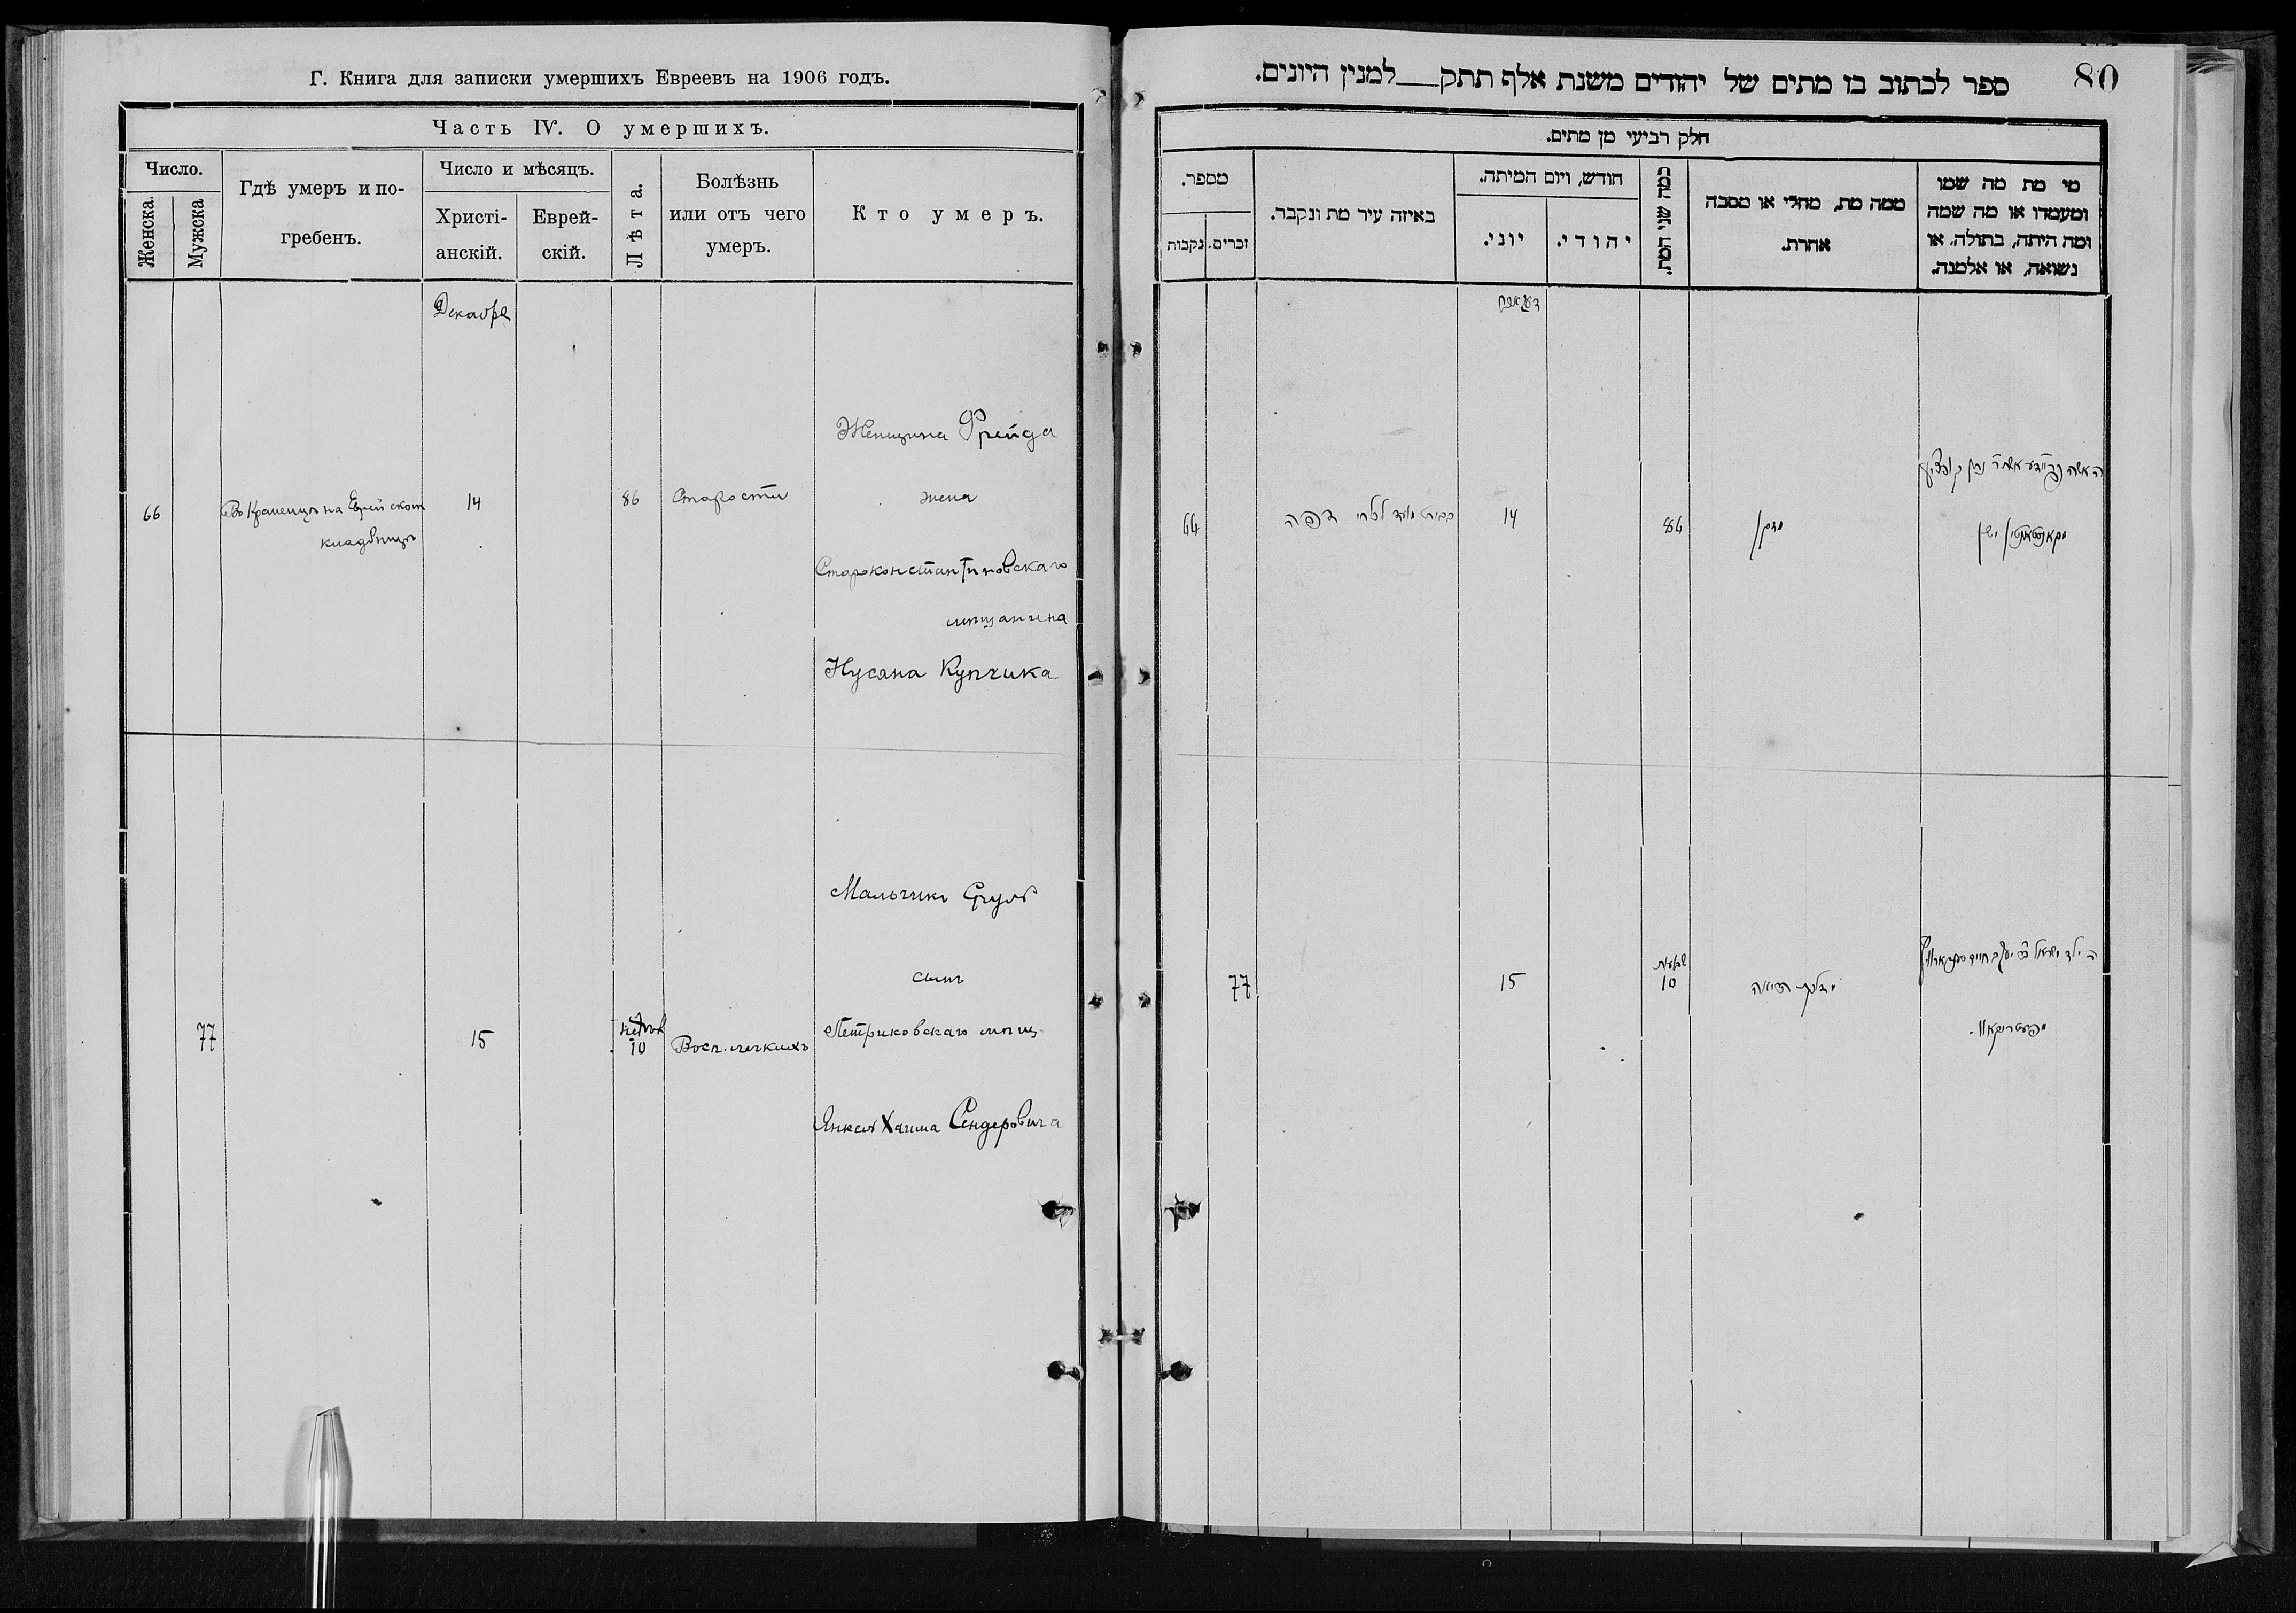 Г. Книга для записки умершихъ Евреевъ на 1906 годъ.
Часть IV. О умершихъ.
Число.
Женска.
Мужска
Гдѣ умеръ и по-
гребенъ.
Число и мѣсяцъ.
Христі-
анскій.
Еврей-
скій.
Лѣта.
Болѣзнь
или отъ чего
умеръ.
Кто умеръ.
Декабря
66
Въ Кременцѣ на Еврейском
кладбищѣ
14
86
Старости
Женщина Фрейда
жена
Староконстантиновскаго
мѣщанина
Нусана Купчика
77
15
10
Восп. легкихъ
Мальчикъ Сруль
сынъ
Петриковскаго мѣщ.
Янкеля Хаима Сендеровича
80
ספר לכתוב בו מתים של יהודים משנת אלף תתק למנין היונים.
חלק רביעי מן מתים.
מספר.
נקבות
זכרים.
באיזה עיר מת ונקבר.
חודש, ויום המיתה.
יוני.
יהודי.
כמה שני המת.
ממה מת, מחלי או מסבה
אחרת.
מי מת מה שמו
ומעמדו או מה שמה
ומה היתה, בתולה, או
נשואה, או אלמנה.
66
14
86
מזקן
האשה פריידע אשת ר נתן קופציק
77
15
10
הילד ישראל
מפעטריקאוו.